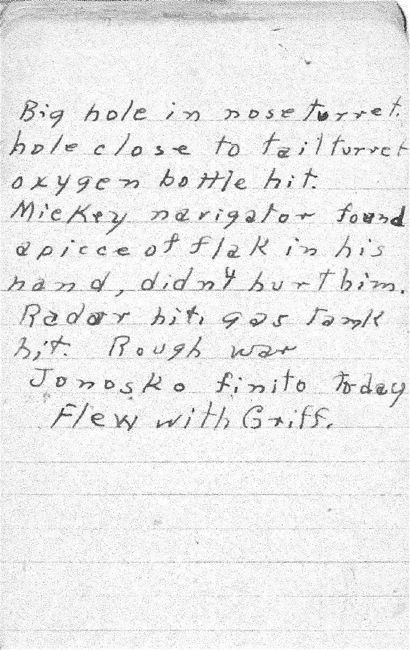 Big hole in nose turret.
hole close to tail turret
oxygen bottle hit.
Mickey navigator found
a piece of flak in his
hand, didn't hurt him.
Radar hit, gas tank
hit. Rough war
Jonosko finito today
Flew with Griff.